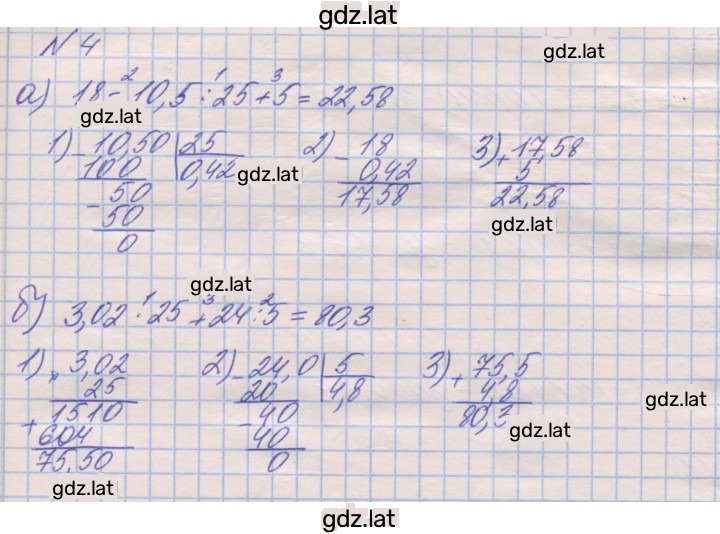 gdz.lat
№ 4
gdz.lat
2 1 3
а) 18 - 10,5 : 25 + 5 = 22,58
gdz.lat
1) - 10,50 | 25
100 0,42 gdz.lat
- 50
50
0
2) - 18
0,42
17,58
3) + 17,58
5
22,58
gdz.lat
gdz.lat
1 3 2
б) 3,02 · 25 + 24 : 5 = 80,3
1) × 3,02
25
+ 1510
604
75,50
gdz.lat
2) - 24,0 | 5
20 4,8
- 40
40
0
3) + 75,5
4,8
80,3
gdz.lat
gdz.lat
gdz.lat